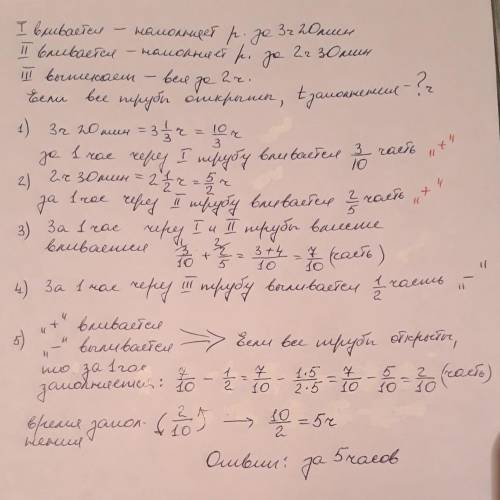 I вливается – наполняет р. за 3ч 20мин
II вливается – наполняет р. за 2ч 30мин
III вытекает – вся за 2ч.
Если все трубы открыты, t заполнения - ? ч
1) 3ч 20мин = 3 1/3 ч = 10/3 ч
за 1 час через I трубу вливается 3/10 часть „+"
2) 2ч 30мин = 2 1/2 ч = 5/2 ч
за 1 час через II трубу вливается 2/5 часть „+"
3) За 1 час через I и II трубы вместе
вливается 3/10 + 2/5 = 3+4/10 = 7/10 (часть)
4) За 1 час через III трубу выливается 1/2 часть „–"
5) „+" вливается
„–" выливается => Если все трубы открыты,
то за 1 час
заполняется: 7/10 - 1/2 = 7/10 - 1·5/2·5 = 7/10 - 5/10 = 2/10 (часть)
время запол-
нения (2/10) → 10/2 = 5ч
Ответ: за 5 часов